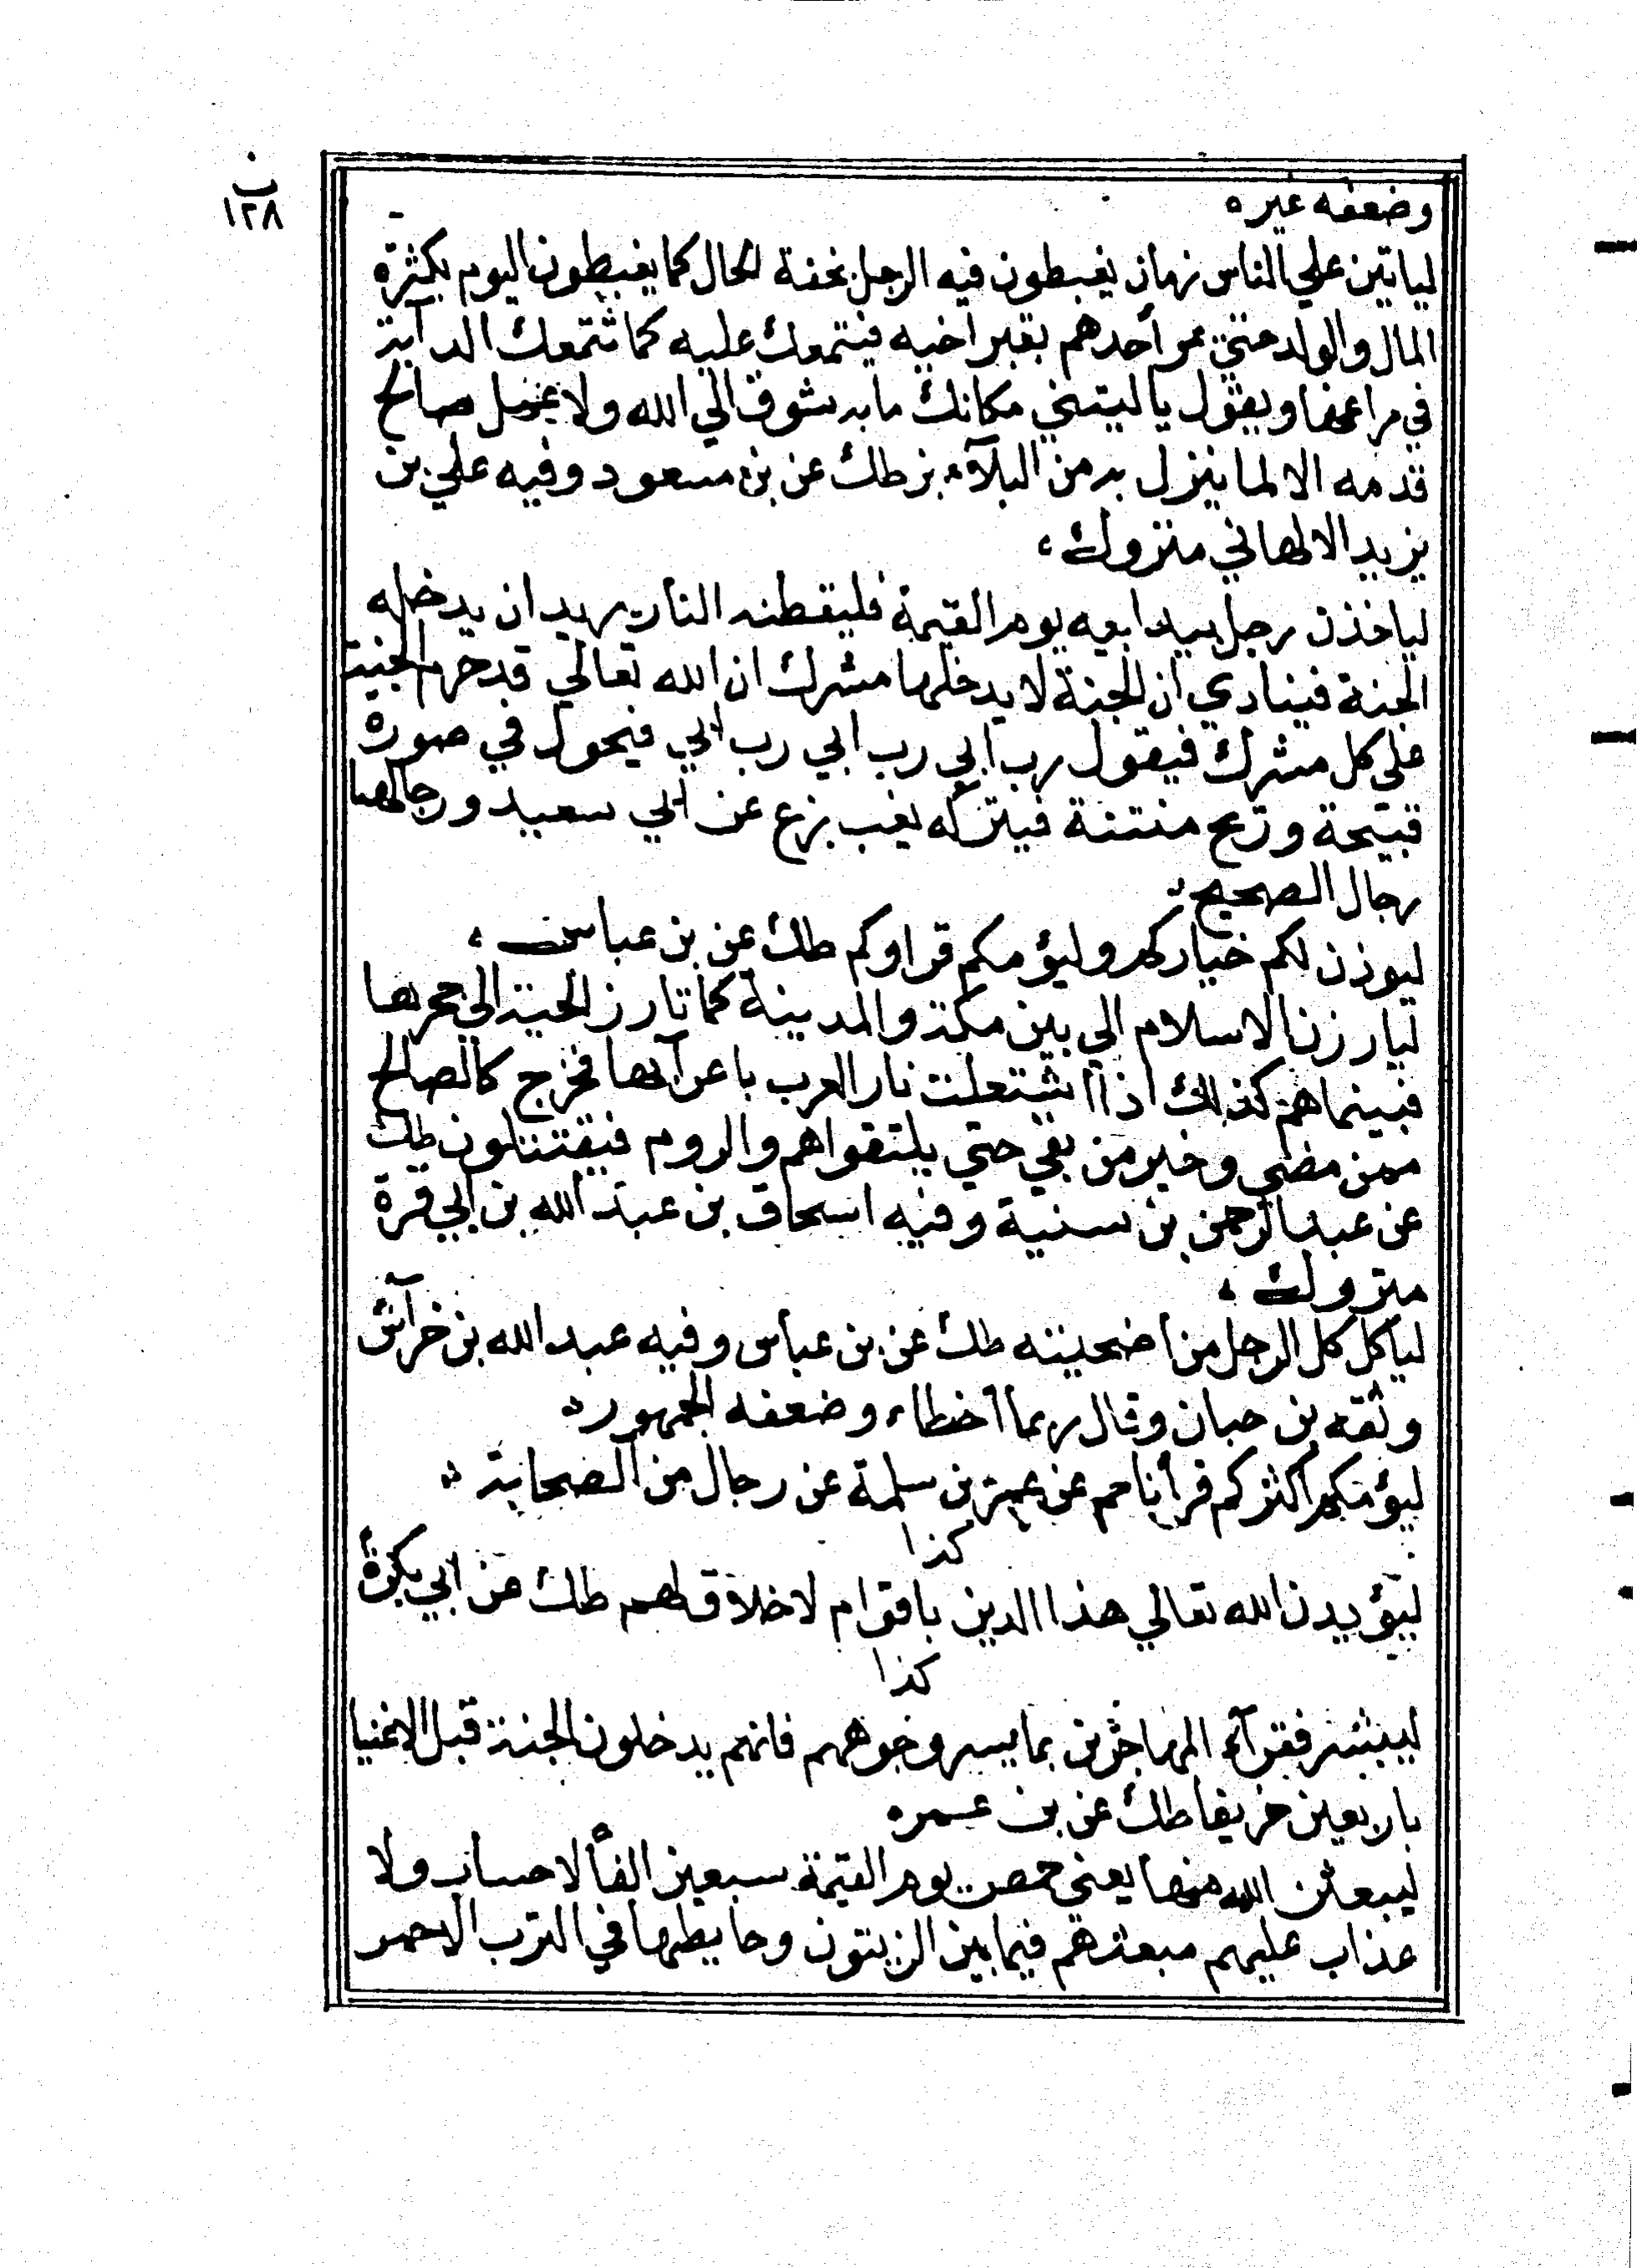 ب
١٢٨
وضعفه غيره
لياتين علي الناس زمان يغبطون فيه الرجل بخفة الحال كما يغبطون اليوم بكثرة
المال والولد حتي يمر أحدهم بقبر اخيه فيتمعك عليه كما تتمعك الدابة
في مراعها ويقول يا ليتني مكانك ما به شوق الي الله ولا عمل صالح
قدمه الا لما ينزل به من البلآء بز طك عن بن مسعود وفيه علي بن
يزيد الالهاني متروك
لياخذن رجل بيد ابيه يوم القيمة فليقطنه النار يريد ان يدخله
الجنة فينادي ان الجنة لا يدخلها مشرك ان الله تعالي قد حرم الجنة
علي كل مشرك فيقول رب ابي رب ابي رب ابي فيحول في صورة
قبيحة وريح منتنة فيتركه يعب بزع عن ابي سعيد ورجالهما
رجال الصحيح
ليوذن لكم خياركم وليؤمكم قراوكم طك عن بن عباس
ليارزن الاسلام الي بين مكة والمدينة كما تارز الحية الي جحرها
فبينما هم كذلك اذا اشتعلت نار العرب باعرابها فخرج كالصالح
ممن مضي وخير من بقي حتي يلتقواهم والروم فيقتتلون طك
عن عبد الرحمن بن سنية وفيه اسحاق بن عبد الله بن ابي فرة
متروك
لياكل كل الرجل من اضحيته طك عن بن عباس وفيه عبد الله بن خراش
وثقه بن حبان وقال ربما أخطاء وضعفه الجمهور
ليؤمكم اكثركم قرأنا حم عن عمرة بن سلمة عن رجال من الصحابة
كذا
ليؤيدن الله تعالي هذا الدين باقوام لا خلاق لهم طك عن ابي بكرة
كذا
ليبشر فقرآء المهاجرين بما يسر وجوههم فانهم يدخلون الجنة قبل الاغنيا
باربعين خريفا طك عن بن عمره
ليبعثن الله منها يعني حمص يوم القيمة سبعين الفاً لا حساب ولا
عذاب عليهم مبعثهم فيما بين الزيتون وحايطها في الترب الاحمر